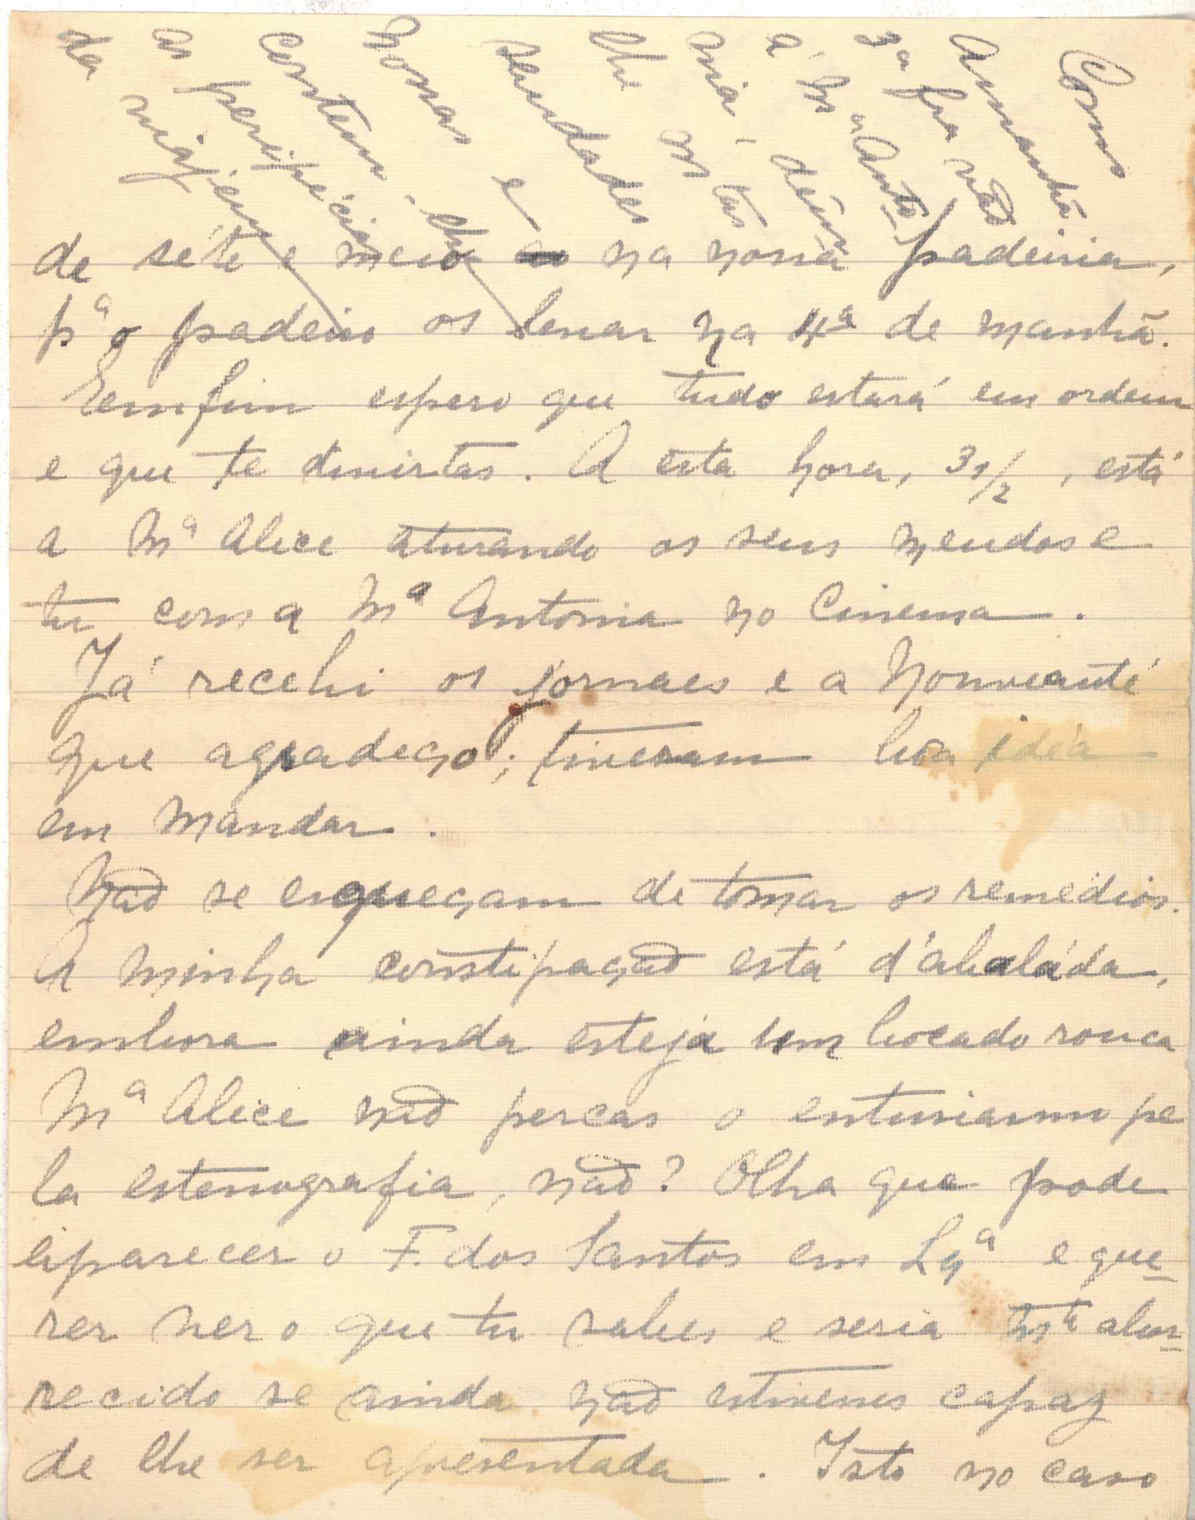 Como
Amanhã
3ª fra vão
á Mª Anto
nia, dêm
lhe as tas
saudades
nossas e
contem-lhe
as peripécias
da viájem
de séte e meio na nossa padeiria,
pª o padeiro os levar na 4ª de manhã.
Eemfim espero que tudo estará em ordem
e que te divirtas. A esta hora, 3 1/2, está
a Mª Alice aturando os seus
tu com a Mª Antonia no Cinema.
Já recebi os jornaes e a Nouveauté
que agradeço; tiveram bôa idéa
em mandar.
Não se esqueçam de tomar os remédios.
A minha constipação está d'abaláda,
embora ainda esteja um bocado rouca
Mª Alice não percas o entusiasmo pe
la estenografia, não? Olha que pode
aparecer o F. dos Santos em Lxª e que-
rer ver o que tu sabes e seria mtº abor-
recido se ainda não estivesses capaz
de lhe ser apresentada. Isto no caso